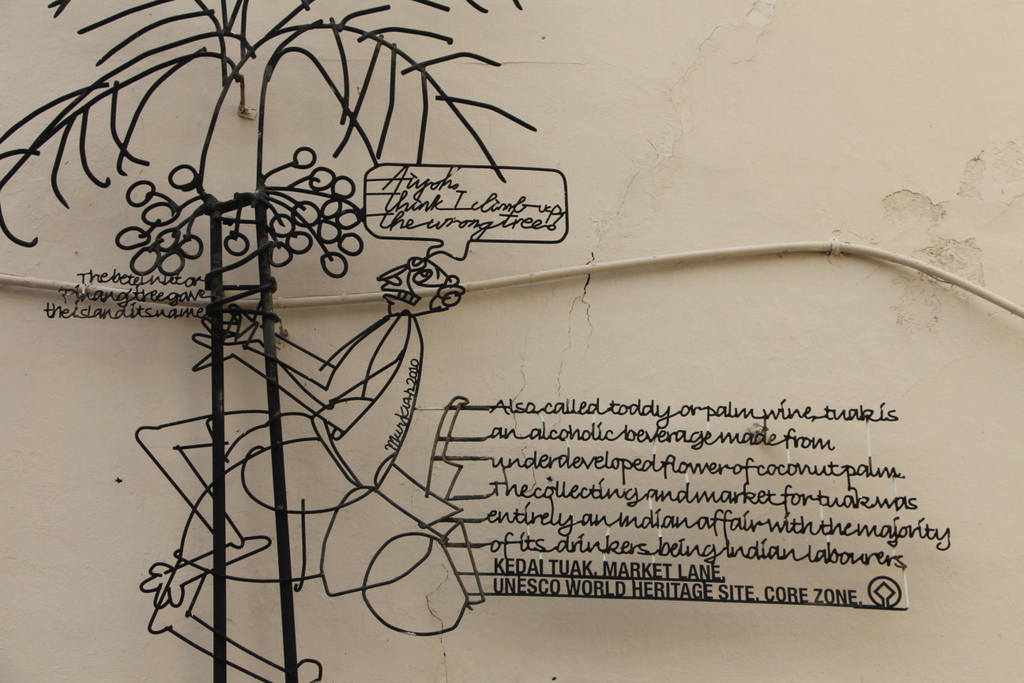 Aiyoh,
think I climb up
the wrong tree!
The betel nut or
Pinang tree gave
the island its name
Also called toddy or palm wine, tuak is
an alcoholic beverage made from
underdeveloped flower of coconut palm.
The collecting and market for tuak was
entirely an indian affair with the majority
of its drinkers being indian labourers.
KEDAI TUAK, MARKET LANE,
UNESCO WORLD HERITAGE SITE, CORE ZONE.